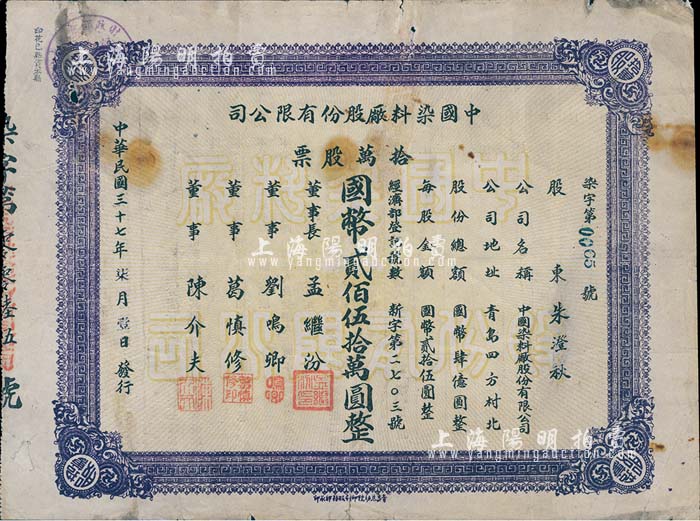 中國染料廠股份有限公司
拾萬股票
染字第0065號
股東 朱澄秋
公司名稱 中國染料廠股份有限公司
公司地址 青島四方村北
股份總額 國幣肆億圓整
每股金額 國幣貳拾伍圓整
經濟部登記號數 新字第二七〇三號
國幣貳佰伍拾萬圓整
董事長 孟繼汾
董事 劉鳴卿
董事 葛慎修
董事 陳介夫
中華民國三十七年柒月壹日發行
染字第零零陸伍號
上海陽明拍賣
www.yangmingauction.com
上海陽明拍賣
www.yangmingauction.com
上海陽明拍賣
www.yangmingauction.com